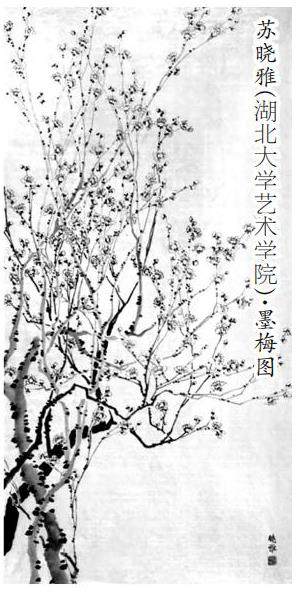 苏晓雅(湖北大学艺术学院)·墨梅图
晓雅